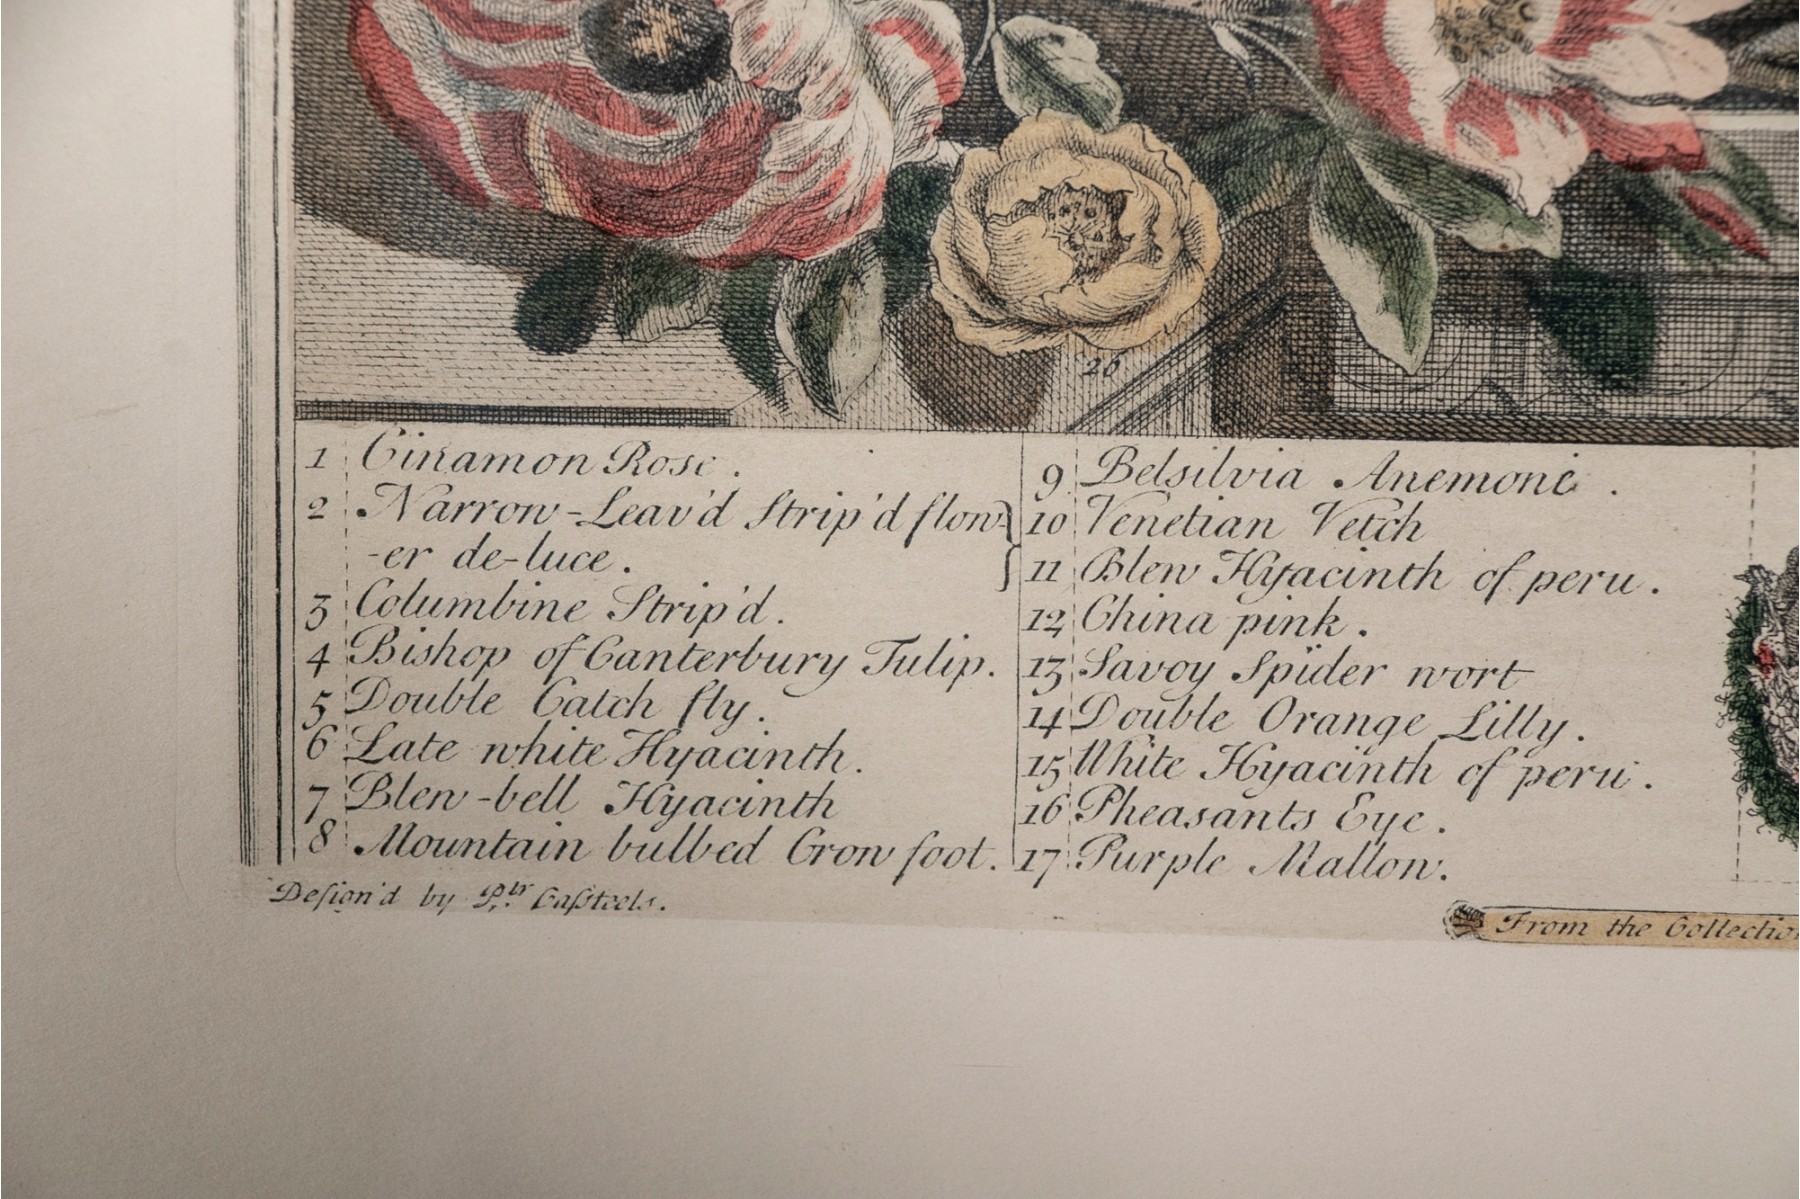 26
1 Cinamon Rose.
2 Narrow-Leav'd Strip'd flow-
-er de-luce.
3 Columbine Strip'd.
4 Bishop of Canterbury Tulip.
5 Double Catch fly.
6 Late white Hyacinth.
7 Blew-bell Hyacinth
8 Mountain bulbed Crow foot.
9 Belsilvia Anemone.
10 Venetian Vetch
11 Blew Hyacinth of peru.
12 China pink.
13 Savoy Spider wort
14 Double Orange Lilly.
15 White Hyacinth of peru.
16 Pheasants Eye.
17 Purple Mallow.
Design'd by Ptr. Casteels.
From the Collectio